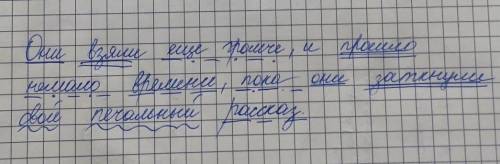 Они взяли еще громче, и прошло
немало времени, пока они заткнули
свой печальный рассказ.